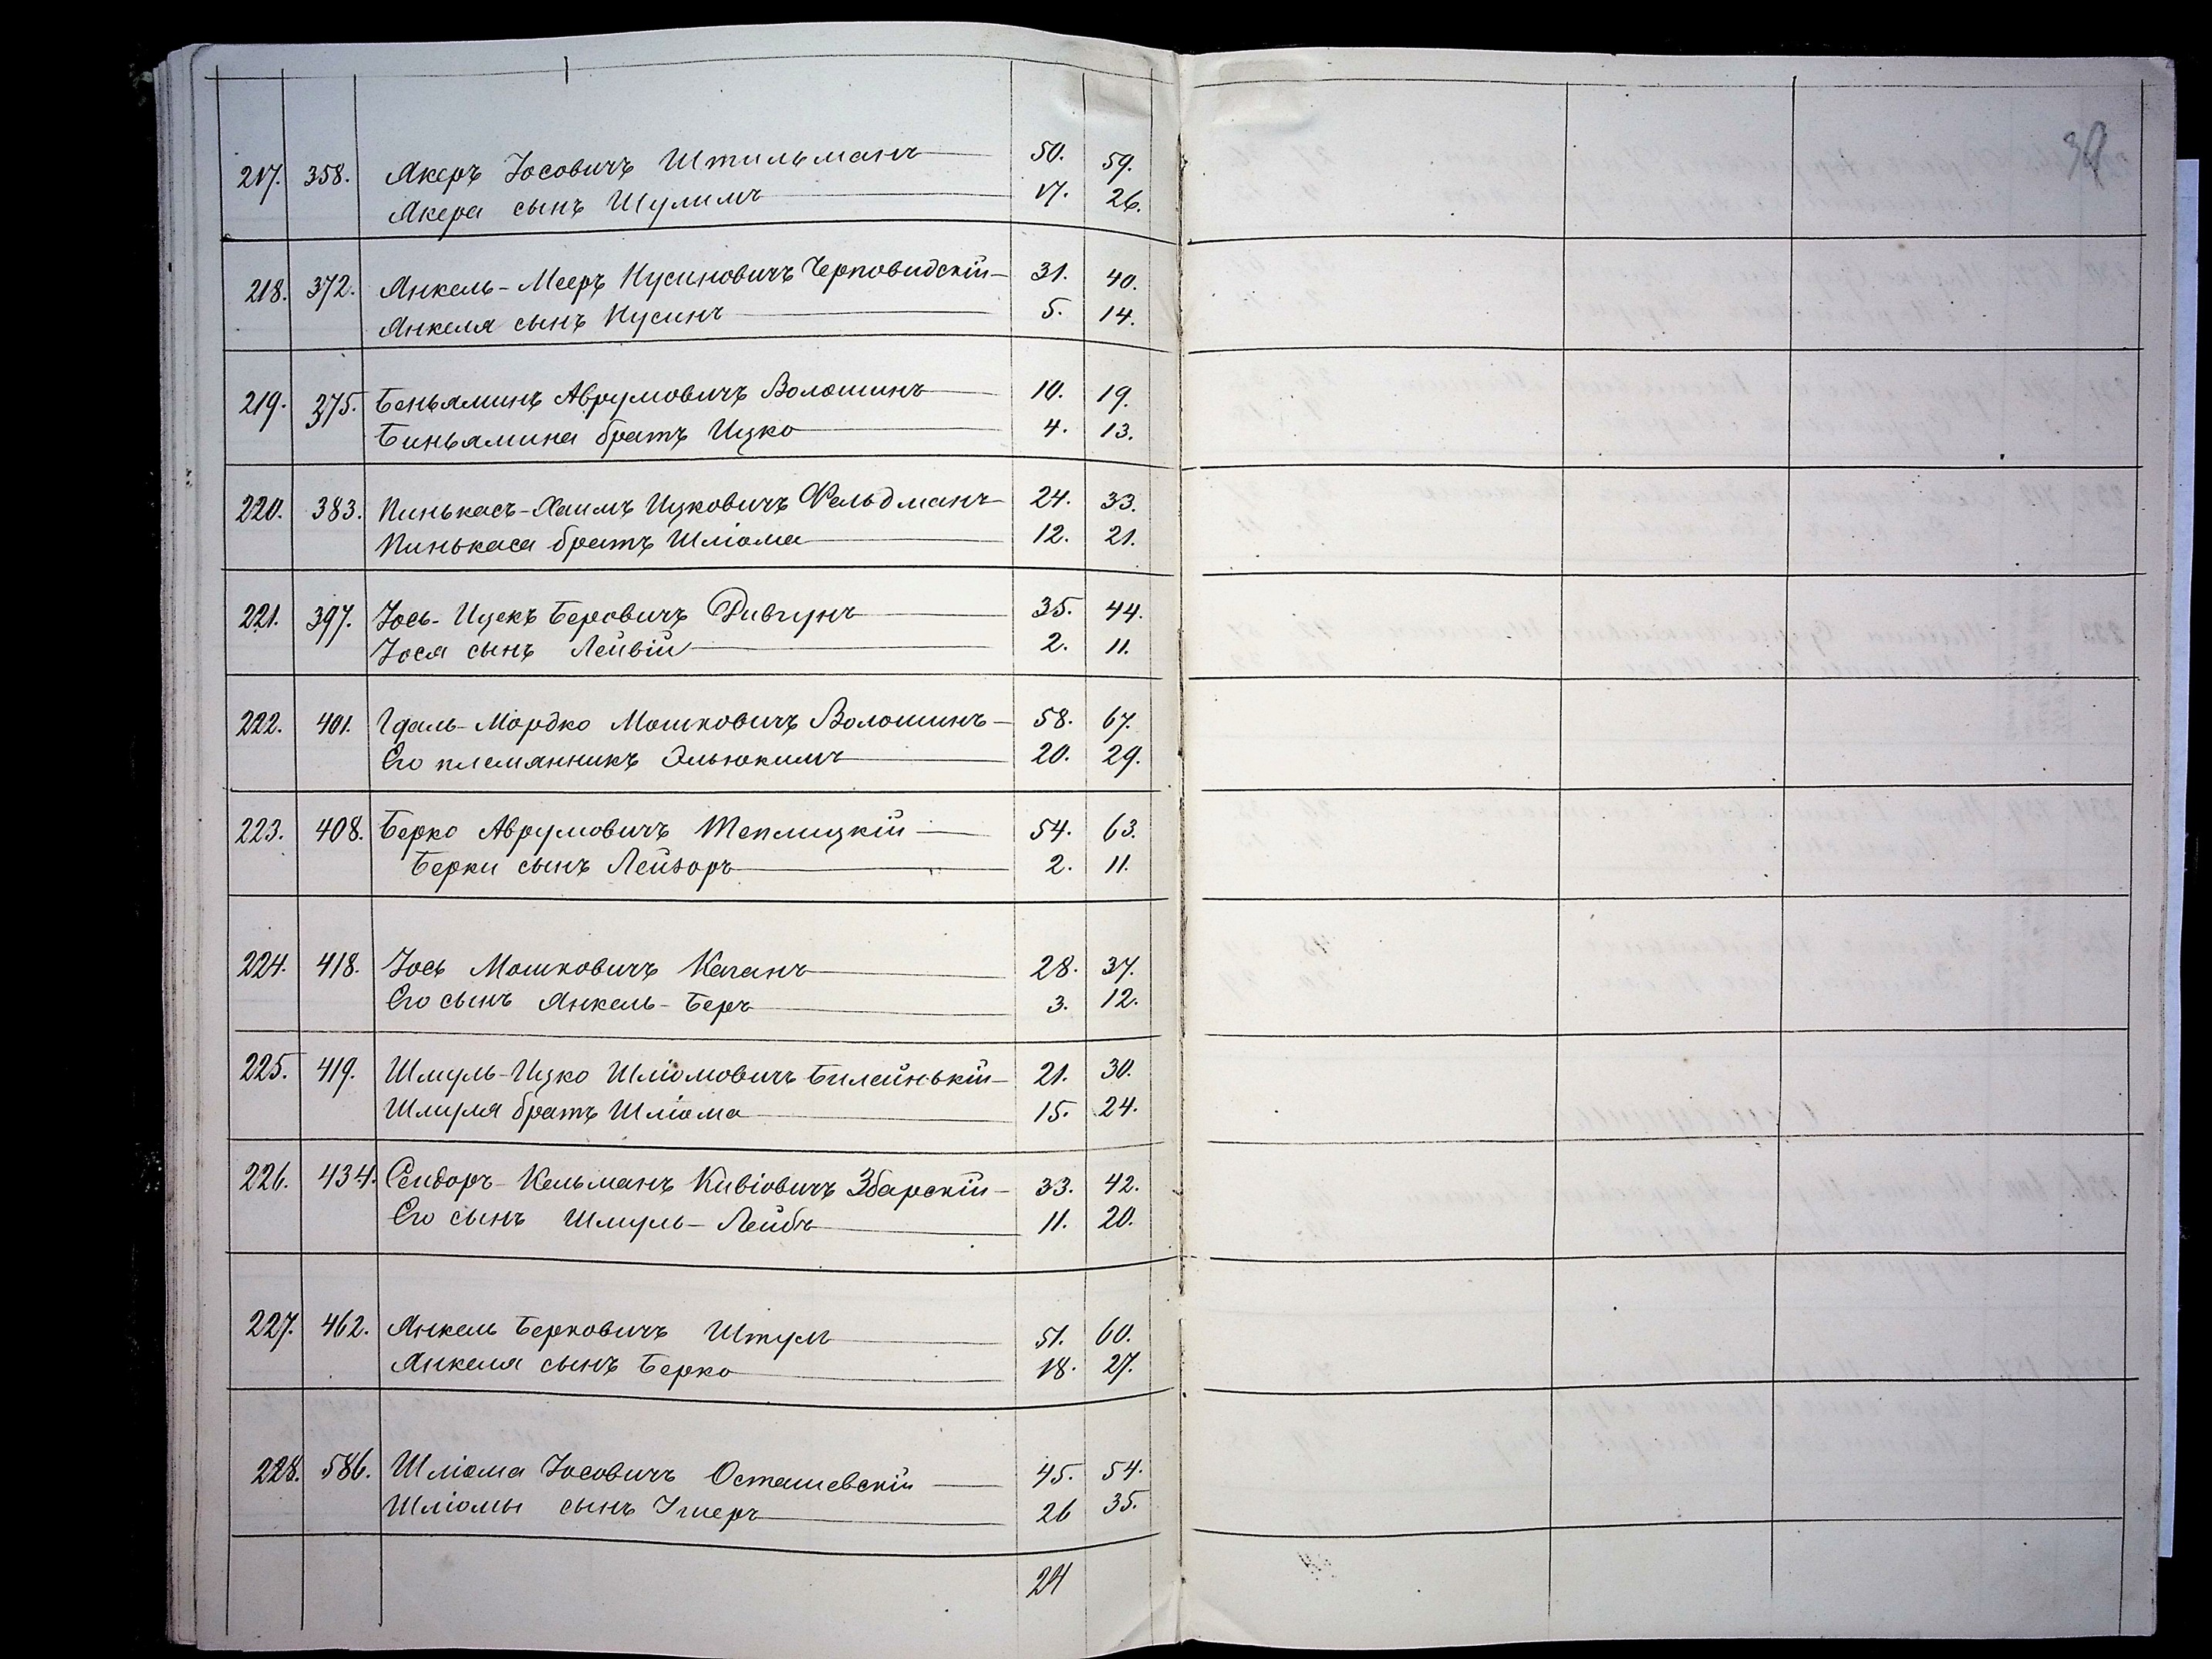 39
217. 358. Акеръ Іосовичъ Штильманъ 50. 59.
Акера сынъ Шулимъ 17. 26.
218. 372. Янкель-Мееръ Нусиновичъ Черповидскій 31. 40.
Янкеля сынъ Нусинъ 5. 14.
219. 375. Беньяминъ Аврумовичъ Волошинъ 10. 19.
Биньямина братъ Ицко 4. 13.
220. 383. Пинькасъ-Хаимъ Ицковичъ Фельдманъ 24. 33.
Пинькаса братъ Шліома 12. 21.
221. 397. Іось-Ицекъ Беровичъ Ривгунъ 35. 44.
Іося сынъ Лейвій 2. 11.
222. 401. Гдаль-Мордко Мошковичъ Волошинъ 58. 67.
Его племянникъ Эльюкимъ 20. 29.
223. 408. Берко Аврумовичъ Теплицкій 54. 63.
Берки сынъ Лейзоръ 2. 11.
224. 418. Іось Мошковичъ Каганъ 28. 37.
Его сынъ Янкель-Беръ 3. 12.
225. 419. Шмуль-Ицко Шліомовичъ Билейнькій 21. 30.
Шмуля братъ Шліома 15. 24.
226. 434. Сендоръ-Кельманъ Кивіовичъ Збарскій 33. 42.
Его сынъ Шмуль-Лейбъ 11. 20.
227. 462. Янкель Берковичъ Штулъ 51. 60.
Янкеля сынъ Берко 18. 27.
228. 586. Шліома Іосовичъ Осташевскій 45. 54.
Шліомы сынъ Ушеръ 26 35.
24